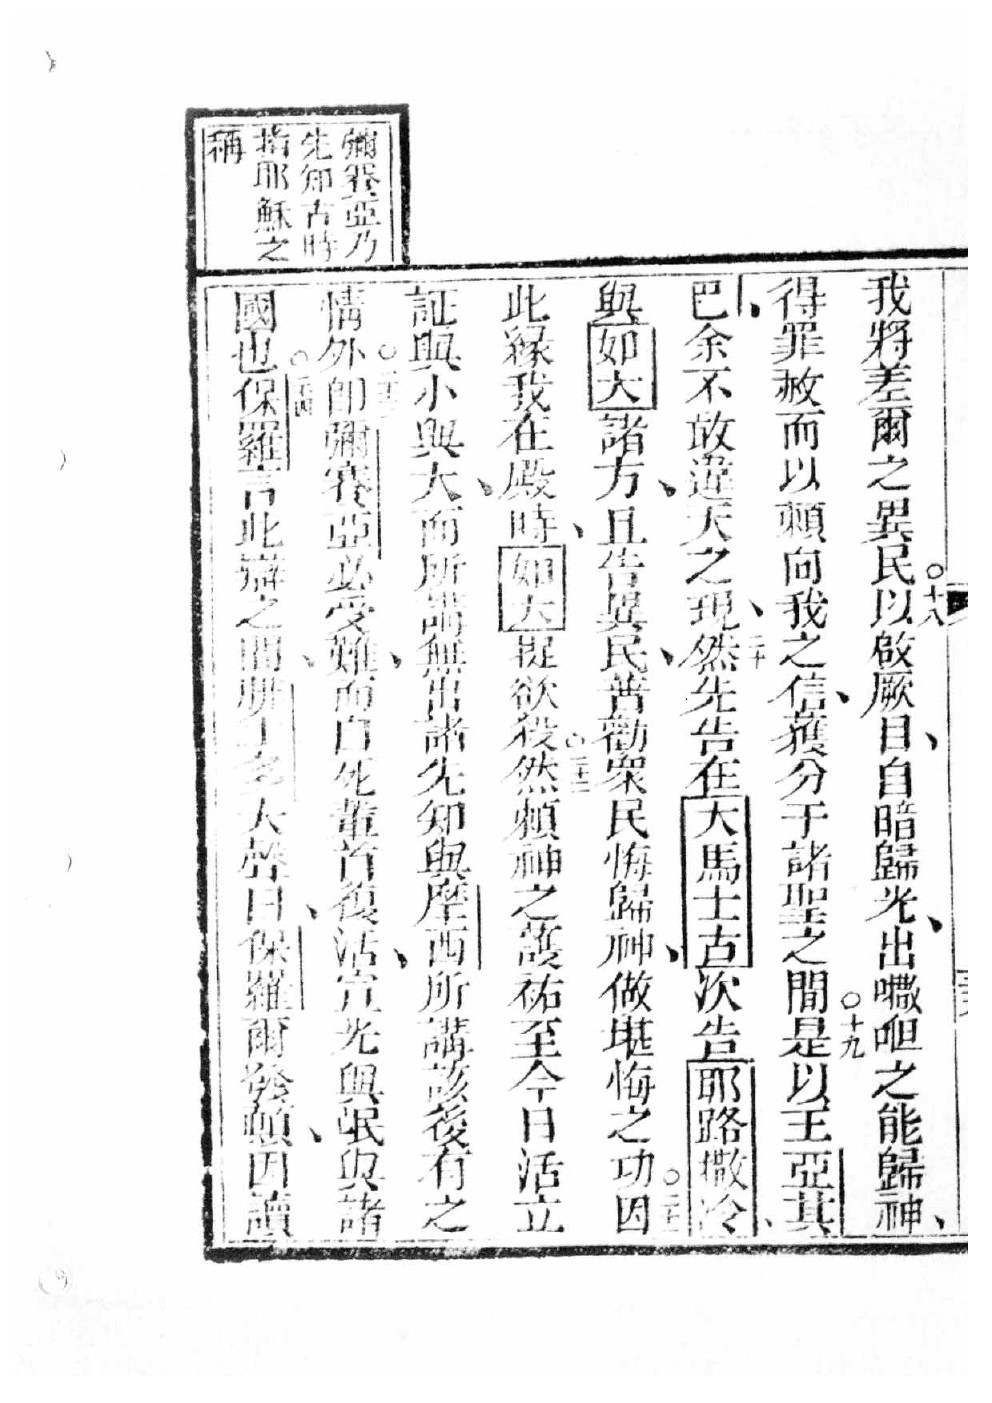 彌賽亞乃
先知古時
指耶穌之
稱
我將差爾之異民以○十八啟厥目、自暗歸光、出嘰呾之能歸神、
得罪赦而以賴向我之信、獲分于諸聖之間○十九是以王亞其
巴、余不敢違天之現、二十然先告在大馬士古次告耶路撒冷、
與如大諸方、且告異民、普勸眾民悔歸神、做堪悔之功○二一因
此緣我在殿時、如大捉欲殺○二二然賴神之護祐至今日活立
証與小與大、而所講無出諸先知與摩西所講該後有之
情外○二三即彌賽亞必受難、而自死輩首復活、宣光與民與諸
國也○二四保羅言此辯之間、大聲曰、保羅爾發頓、因讀